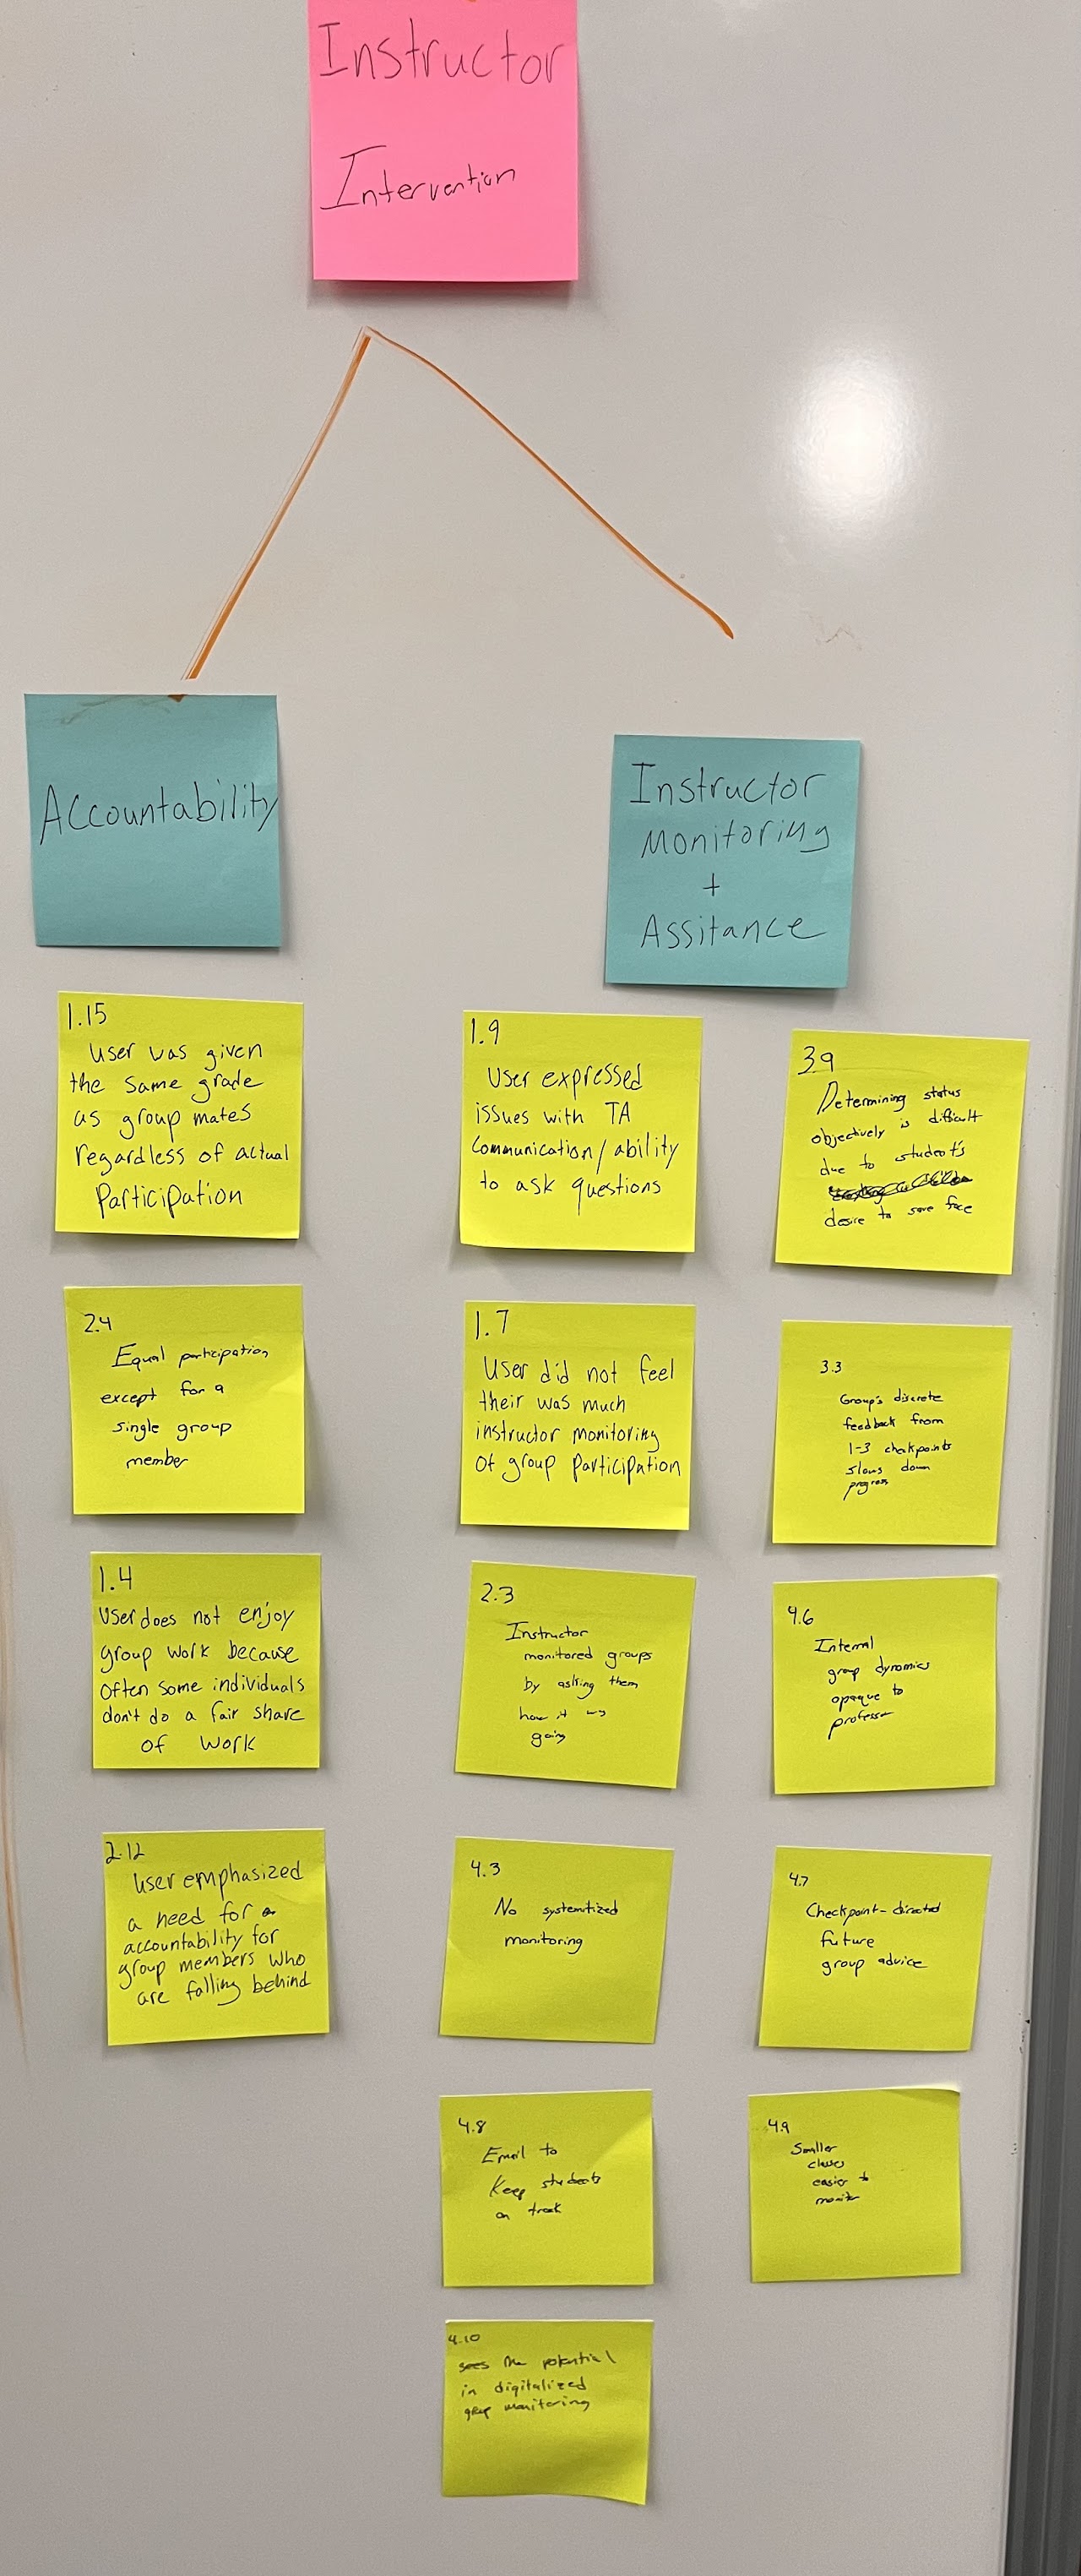 Instructor
Intervention
Accountability
Instructor
Monitoring
+
Assitance
1.15
User was given
the same grade
as group mates
regardless of actual
Participation
2.4
Equal participation
except for a
single group
member
1.4
User does not enjoy
group work because
often some individuals
don't do a fair share
of work
2.12
User emphasized
a need for
accountability for
group members who
are falling behind
1.9
User expressed
issues with TA
Communication/ability
to ask questions
1.7
User did not feel
their was much
instructor monitoring
of group participation
2.3
Instructor
monitored groups
by asking them
how it was
going
4.3
No systemitized
monitoring
4.8
Email to
Keep students
on track
4.10
sees the potential
in digitalized
group monitoring
3.9
Determining status
objectively is difficult
due to student's
desire to save face
3.3
Group's discrete
feedback from
1-3 checkpoints
slows down
progress
4.6
Internal
group dynamics
opaque to
professor
4.7
Checkpoint-directed
future
group advice
4.9
Smaller
classes
easier to
monitor